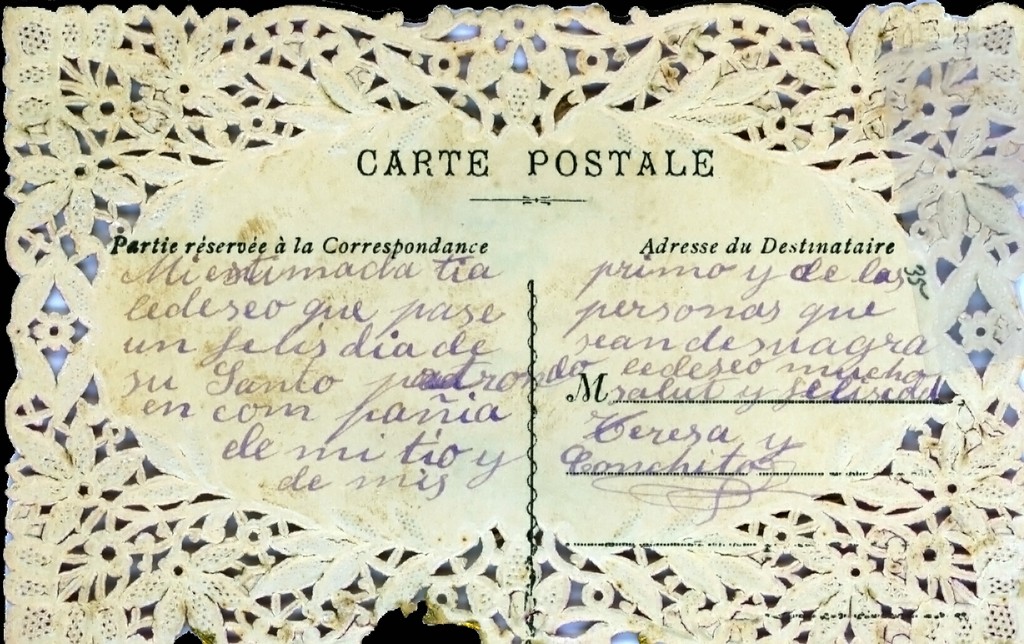 CARTE POSTALE
Partie réservée à la Correspondance
Mi estimada tia
ledeseo que pase
un felis dia de
su Santo padrondo
en com pañia
de mi tio y
de mis
Adresse du Destinataire
primo y de las
personas que
sean de suagra
ledeseo mucho
M salut y felisida
Teresa y
Conchita
35